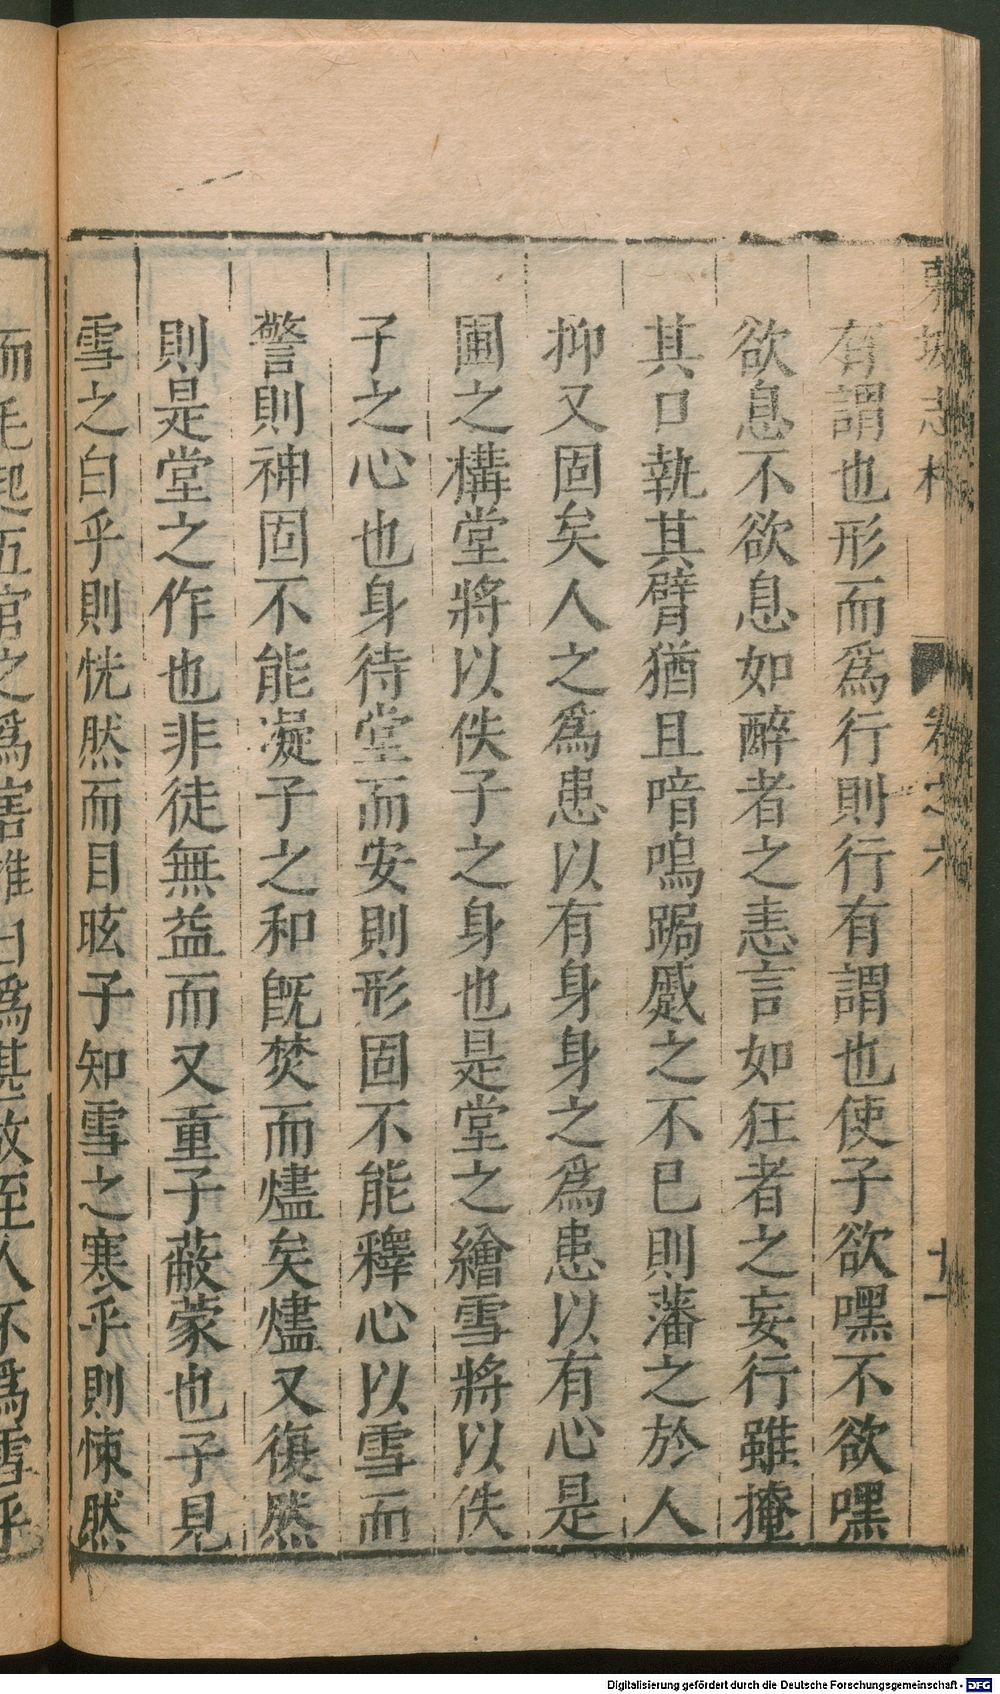 東坡志林 卷之六 十一
有謂也形而爲行則行有謂也使子欲嘿不欲嘿
欲息不欲息如醉者之恚言如狂者之妄行雖掩
其口執其臂猶且喑嗚跼蹙之不已則藩之於人
抑又固矣人之爲患以有身身之爲患以有心是
圃之構堂將以佚子之身也是堂之繪雪將以佚
子之心也身待堂而安則形固不能釋心以雪而
警則神固不能凝子之和旣焚而燼矣燼又復然
則是堂之作也非徒無益而又重子蔽蒙也子見
雪之白乎則恍然而目眩子知雪之寒乎則悚然
而毛起五官之爲害惟目爲甚故至人不爲雪乎
Digitalisierung gefördert durch die Deutsche Forschungsgemeinschaft - DFG